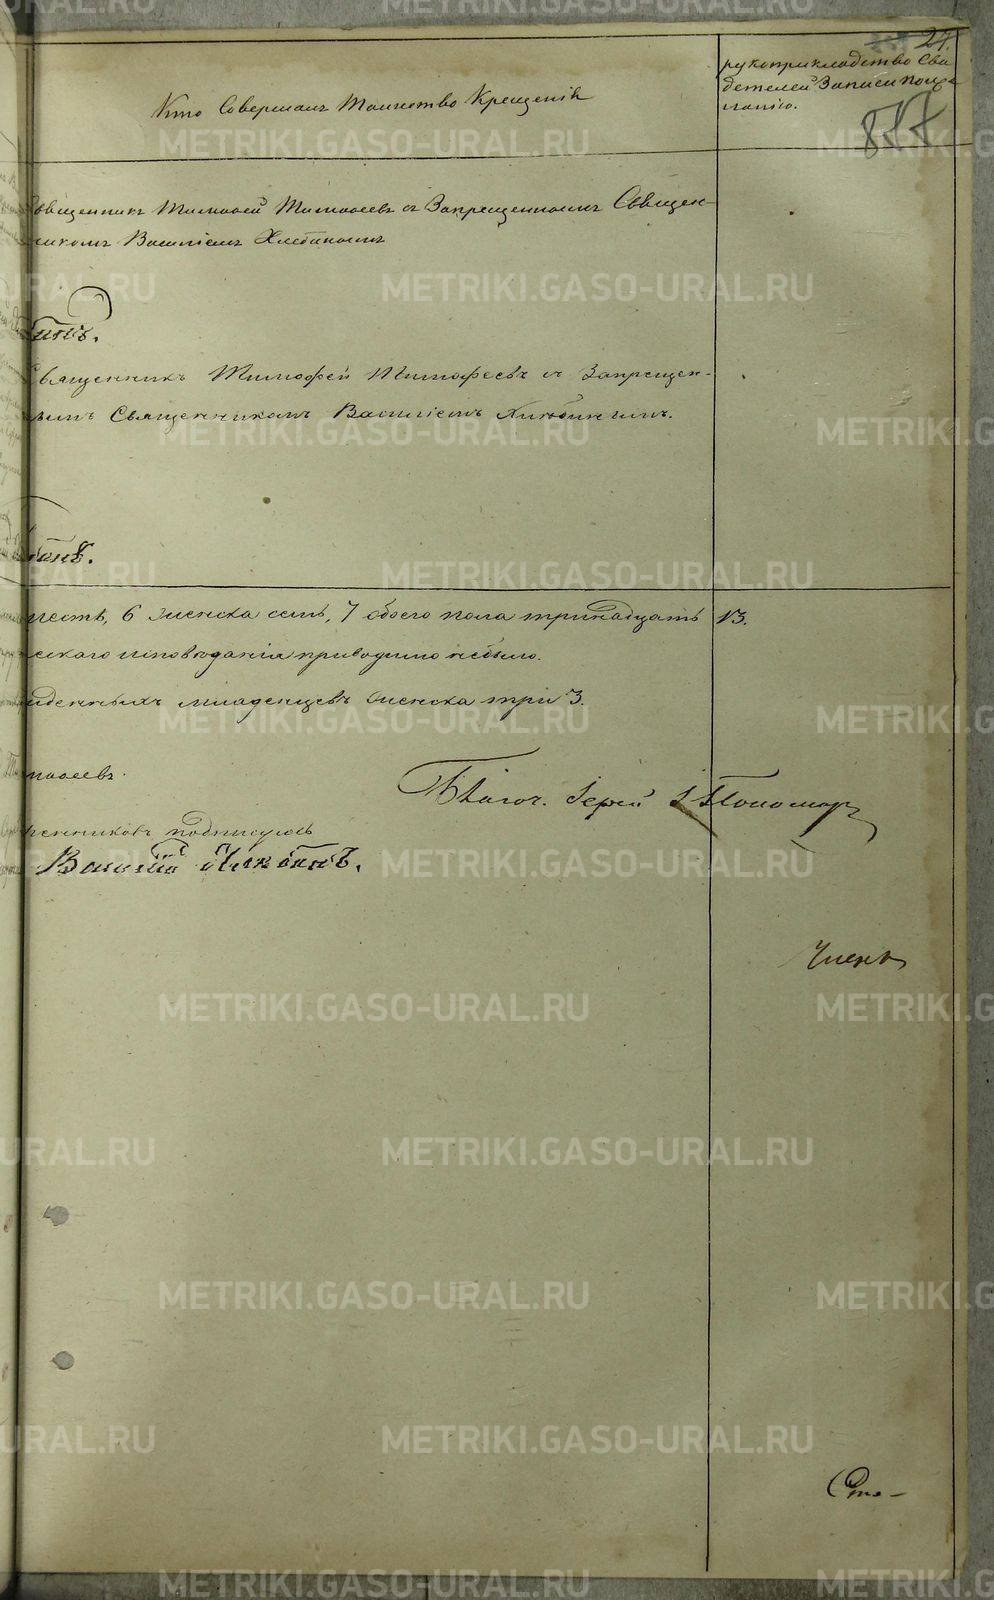 24.
Кто Совершалъ Таинство Крещенія
рукоприкладство Сви
детелей Записи по же
ланію.
877
Священникъ Тимофей Тимофеевъ съ Запрещеннымъ Священ-
никомъ Василіемъ Хлебинымъ
инъ.
Священникъ Тимофей Тимофеевъ съ Запрещен-
нымъ Священникомъ Василіемъ Хлебинымъ.
бинъ.
шесть, 6 женска семь, 7 обоего пола тринадцать 13.
скаго исповѣданія приводимо небыло.
денныхъ младенцевъ женска три 3.
мофеевъ.
Благоч. Іерей І Пономар
щенниковъ подписуюсь
Василій Хлѣбинъ.
Членъ
METRIKI.GASO-URAL.RU